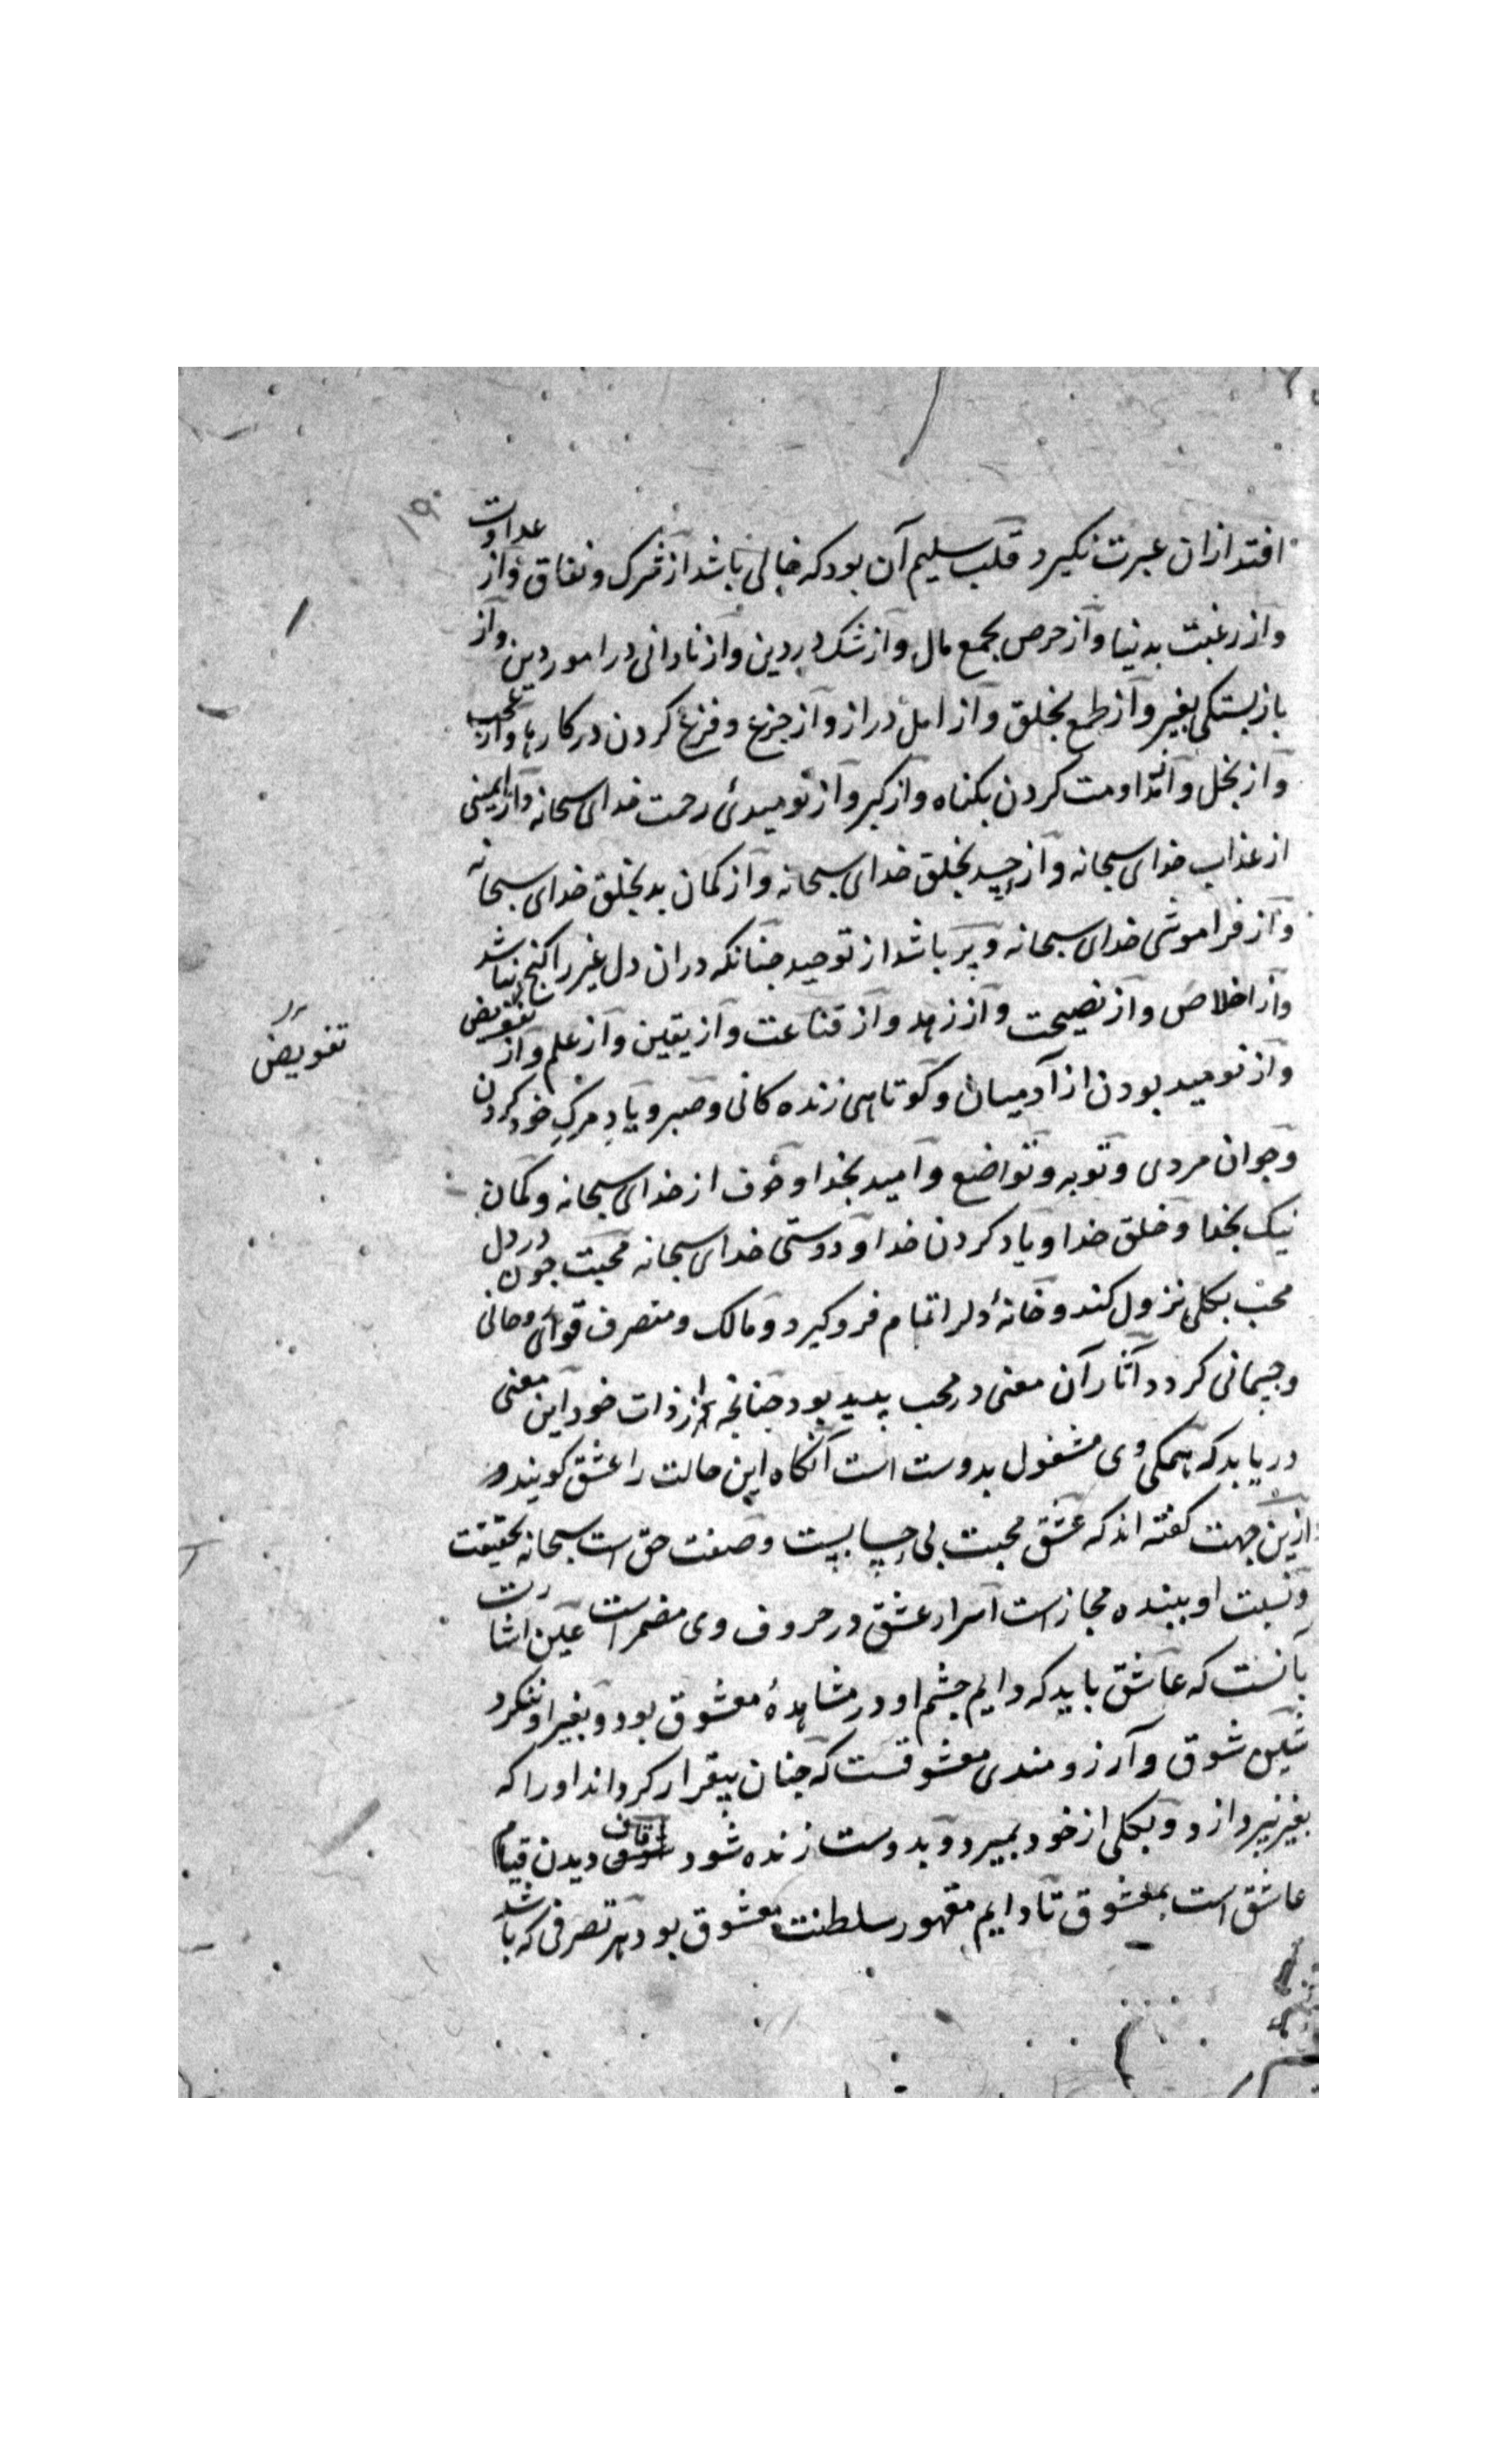 ۱۹۰
افتد ازان عبرت نکیرد قلب سلیم آن بود که خالی باشد از شرک و نفاق و از عداوت
و از رغبت بدنیا و از حرص بجمع مال و از شک در دین و از نادانی در امور دین و از
بازبستکی بغیر و از طمع بخلق و از امل دراز و از جزع و فزع کردن در کارها و از عجب
و از بخل و از مداومت کردن بکناه و از کبر و از نومیدئ رحمت خدای سبحانه و از ایمنی
از عذاب خدای سبحانه و از حسد بخلق خدای سبحانه و از کمان بد بخلق خدای سبحانه
و از فراموشی خدای سبحانه و پر باشد از توحید جنانکه دران دل غیر را کنج نباشد
و از اخلاص و از نصیحت و از زهد و از قناعت و از یقین و از علم و از تفویض
تفویض
و از نومید بودن از آدمیان و کوتاهی زنده کانی و صبر و یاد مرک خود کردن
و جوان مردی و توبه و تواضع و امید بخدا و خوف از خدای سبحانه و کمان
نیک بخدا و خلق خدا و یاد کردن خدا و دوستی خدای سبحانه محبت جون در دل
محب بکلی نزول کند و خانهٔ دلرا تمام فرو کیرد و مالک و متصرف قوای روحانی
و جسمانی کردد آثار آن معنی در محب پدید بود جنانجه از ذات خود این معنی
دریابد که همکی وی مشغول بدوست است آنکاه این حالت را عشق کویند و
ازین جهت کفته اند که عشق محبت بی حسابیست و صفت حق است سبحانه بحقیقت
و نسبت او ببنده مجازست اسرار عشق در حروف وی مضمر است عین اشارت
بآنست که عاشق باید که دایم جشم او در مشاهدهٔ معشوق بود و بغیر او ننکرد
شین شوق و آرزومندی معشوقست که جنان بیقرار کرداند او را که
بغیر نپردازد و بکلی از خود بمیرد و بدوست زنده شود قاف دیدن قیام
عاشق است بمعشوق تا دایم مقهور سلطنت معشوق بود هر تصرفی که باشد